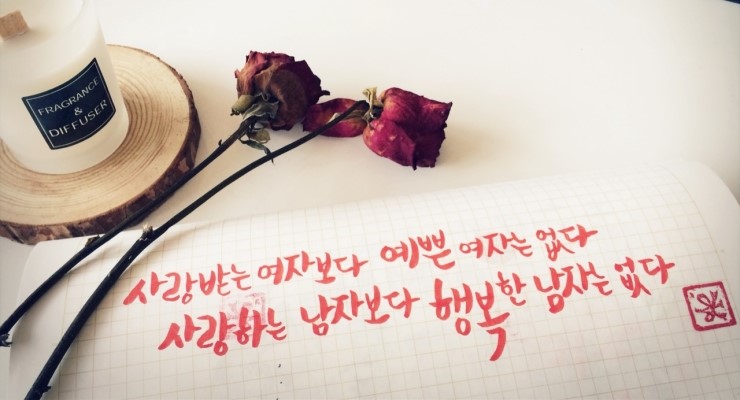 FRAGRANCE
&
DIFFUSER
사랑받는 여자보다 예쁜 여자는 없다
사랑하는 남자보다 행복한 남자는 없다